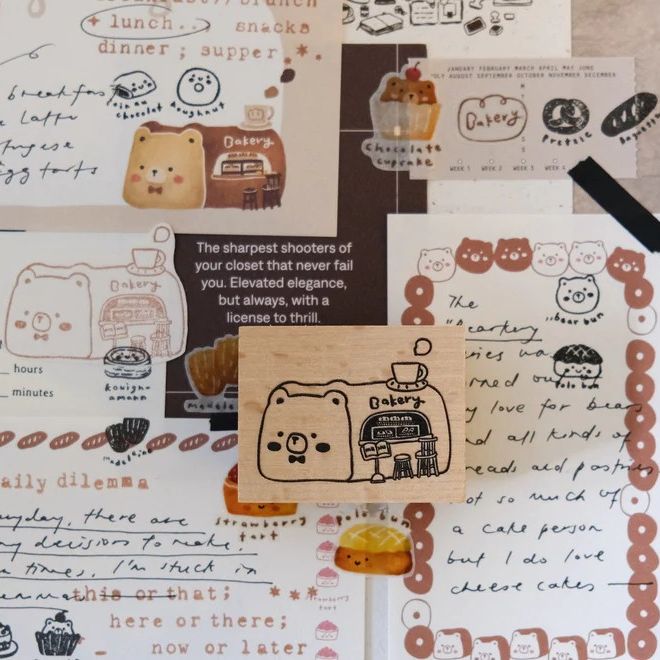 + lunch.. snacks
dinner; supper
Latte
doughnut
chocolat
Bakery
Chocolate
cupcake
JANUARY FEBRUARY MARCH APRIL MAY JUNE
JULY AUGUST SEPTEMBER OCTOBER NOVEMBER DECEMBER
Bakery
Pretzle
WEEK 1 WEEK 2 WEEK 3 WEEK 4
The sharpest shooters of
your closet that never fail
you. Elevated elegance,
but always, with a
license to thrill.
Bakery
hours
minutes
kouign-
amann
Bakery
The
"Bearkery
"bear bun
polo bun
my love for bears
and all kinds of
breads and pastries
not so much of
a cake person
but I do love
cheese cakes
madeleine
daily dilemma
everyday, there are
decisions to make.
times, I'm stuck in
this or that;
here or there;
now or later
strawberry
tart
polo bun
strawberry
tart